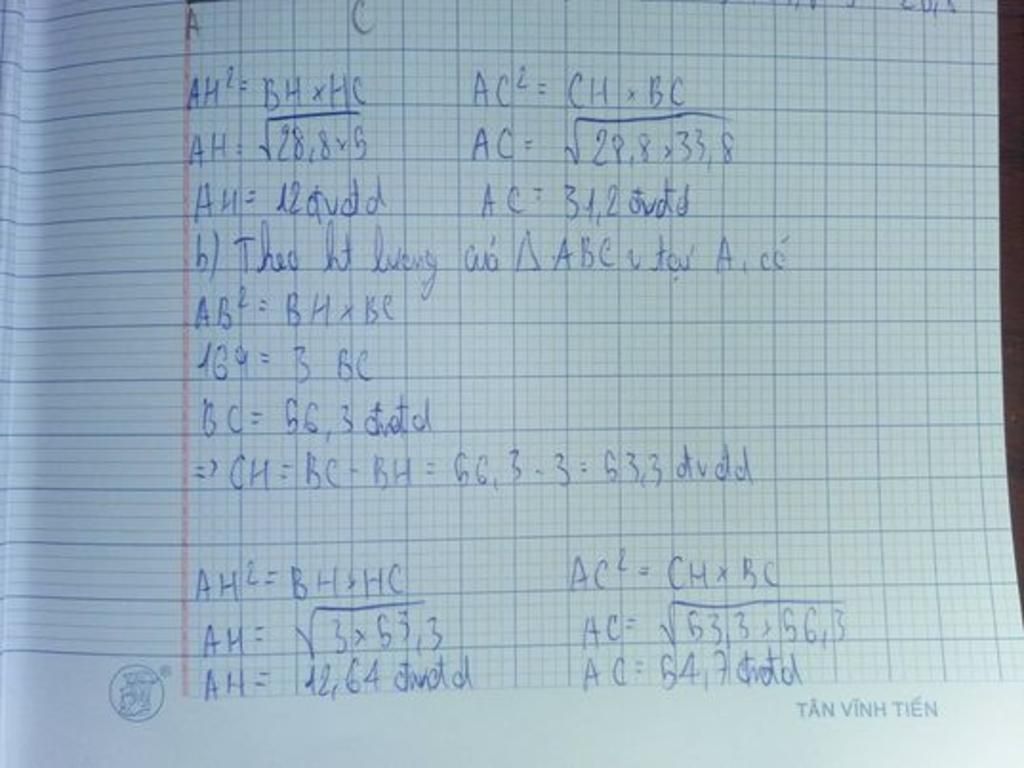 A C
AH² = BH × HC AC² = CH × BC
AH = √28,8×5 AC = √28,8×33,8
AH = 12 đvđd AC = 31,2 đvđd
b) Theo ht lượng của Δ ABC v tại A, có
AB² = BH × BC
169 = 3 BC
BC = 56,3 đvđd
=> CH = BC - BH = 56,3 - 3 = 53,3 đvđd
AH² = BH × HC AC² = CH × BC
AH = √3×53,3 AC = √53,3×56,3
AH = 12,64 đvđd AC = 54,7 đvđd
TÂN VĨNH TIẾN